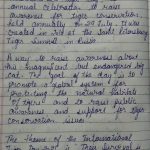 annual celebration to raise
awareness for tiger conservation
held annually on 29 July. It was
created in 2010 at the Saint Petersburg
Tiger Summit in Russia
A way to raise awareness about
this magnificent but endangered big
cat. The goal of the day is to
promote a global system for
protecting the natural habitats
of tigers and to raise public
awareness and support for tiger
conservation issues
The Theme of the International